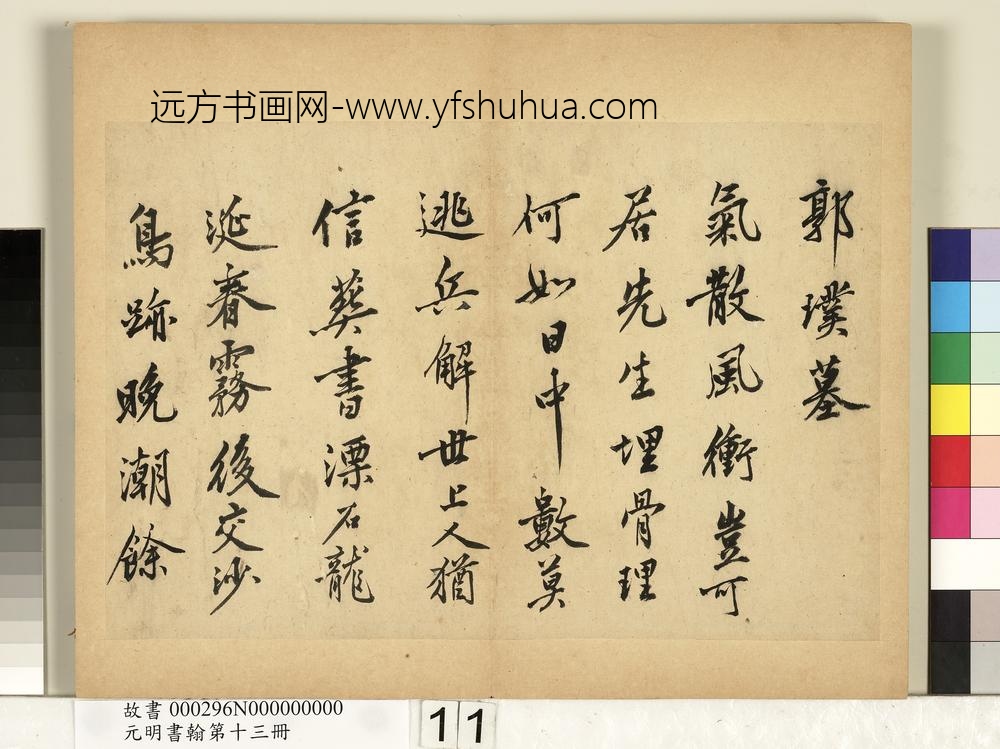 远方书画网-www.yfshuhua.com
郭璞墓
氣散風衝豈可
居先生埋骨理
何如日中數莫
逃兵解世上人猶
信葬書漂石龍
涎春霧後交沙
鳥跡晚潮餘
故書 000296N000000000
元明書翰第十三冊
11